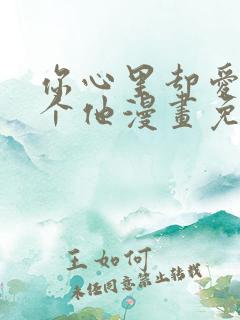 你心里却爱
个他漫畫免
王如何
未经同意禁止转载